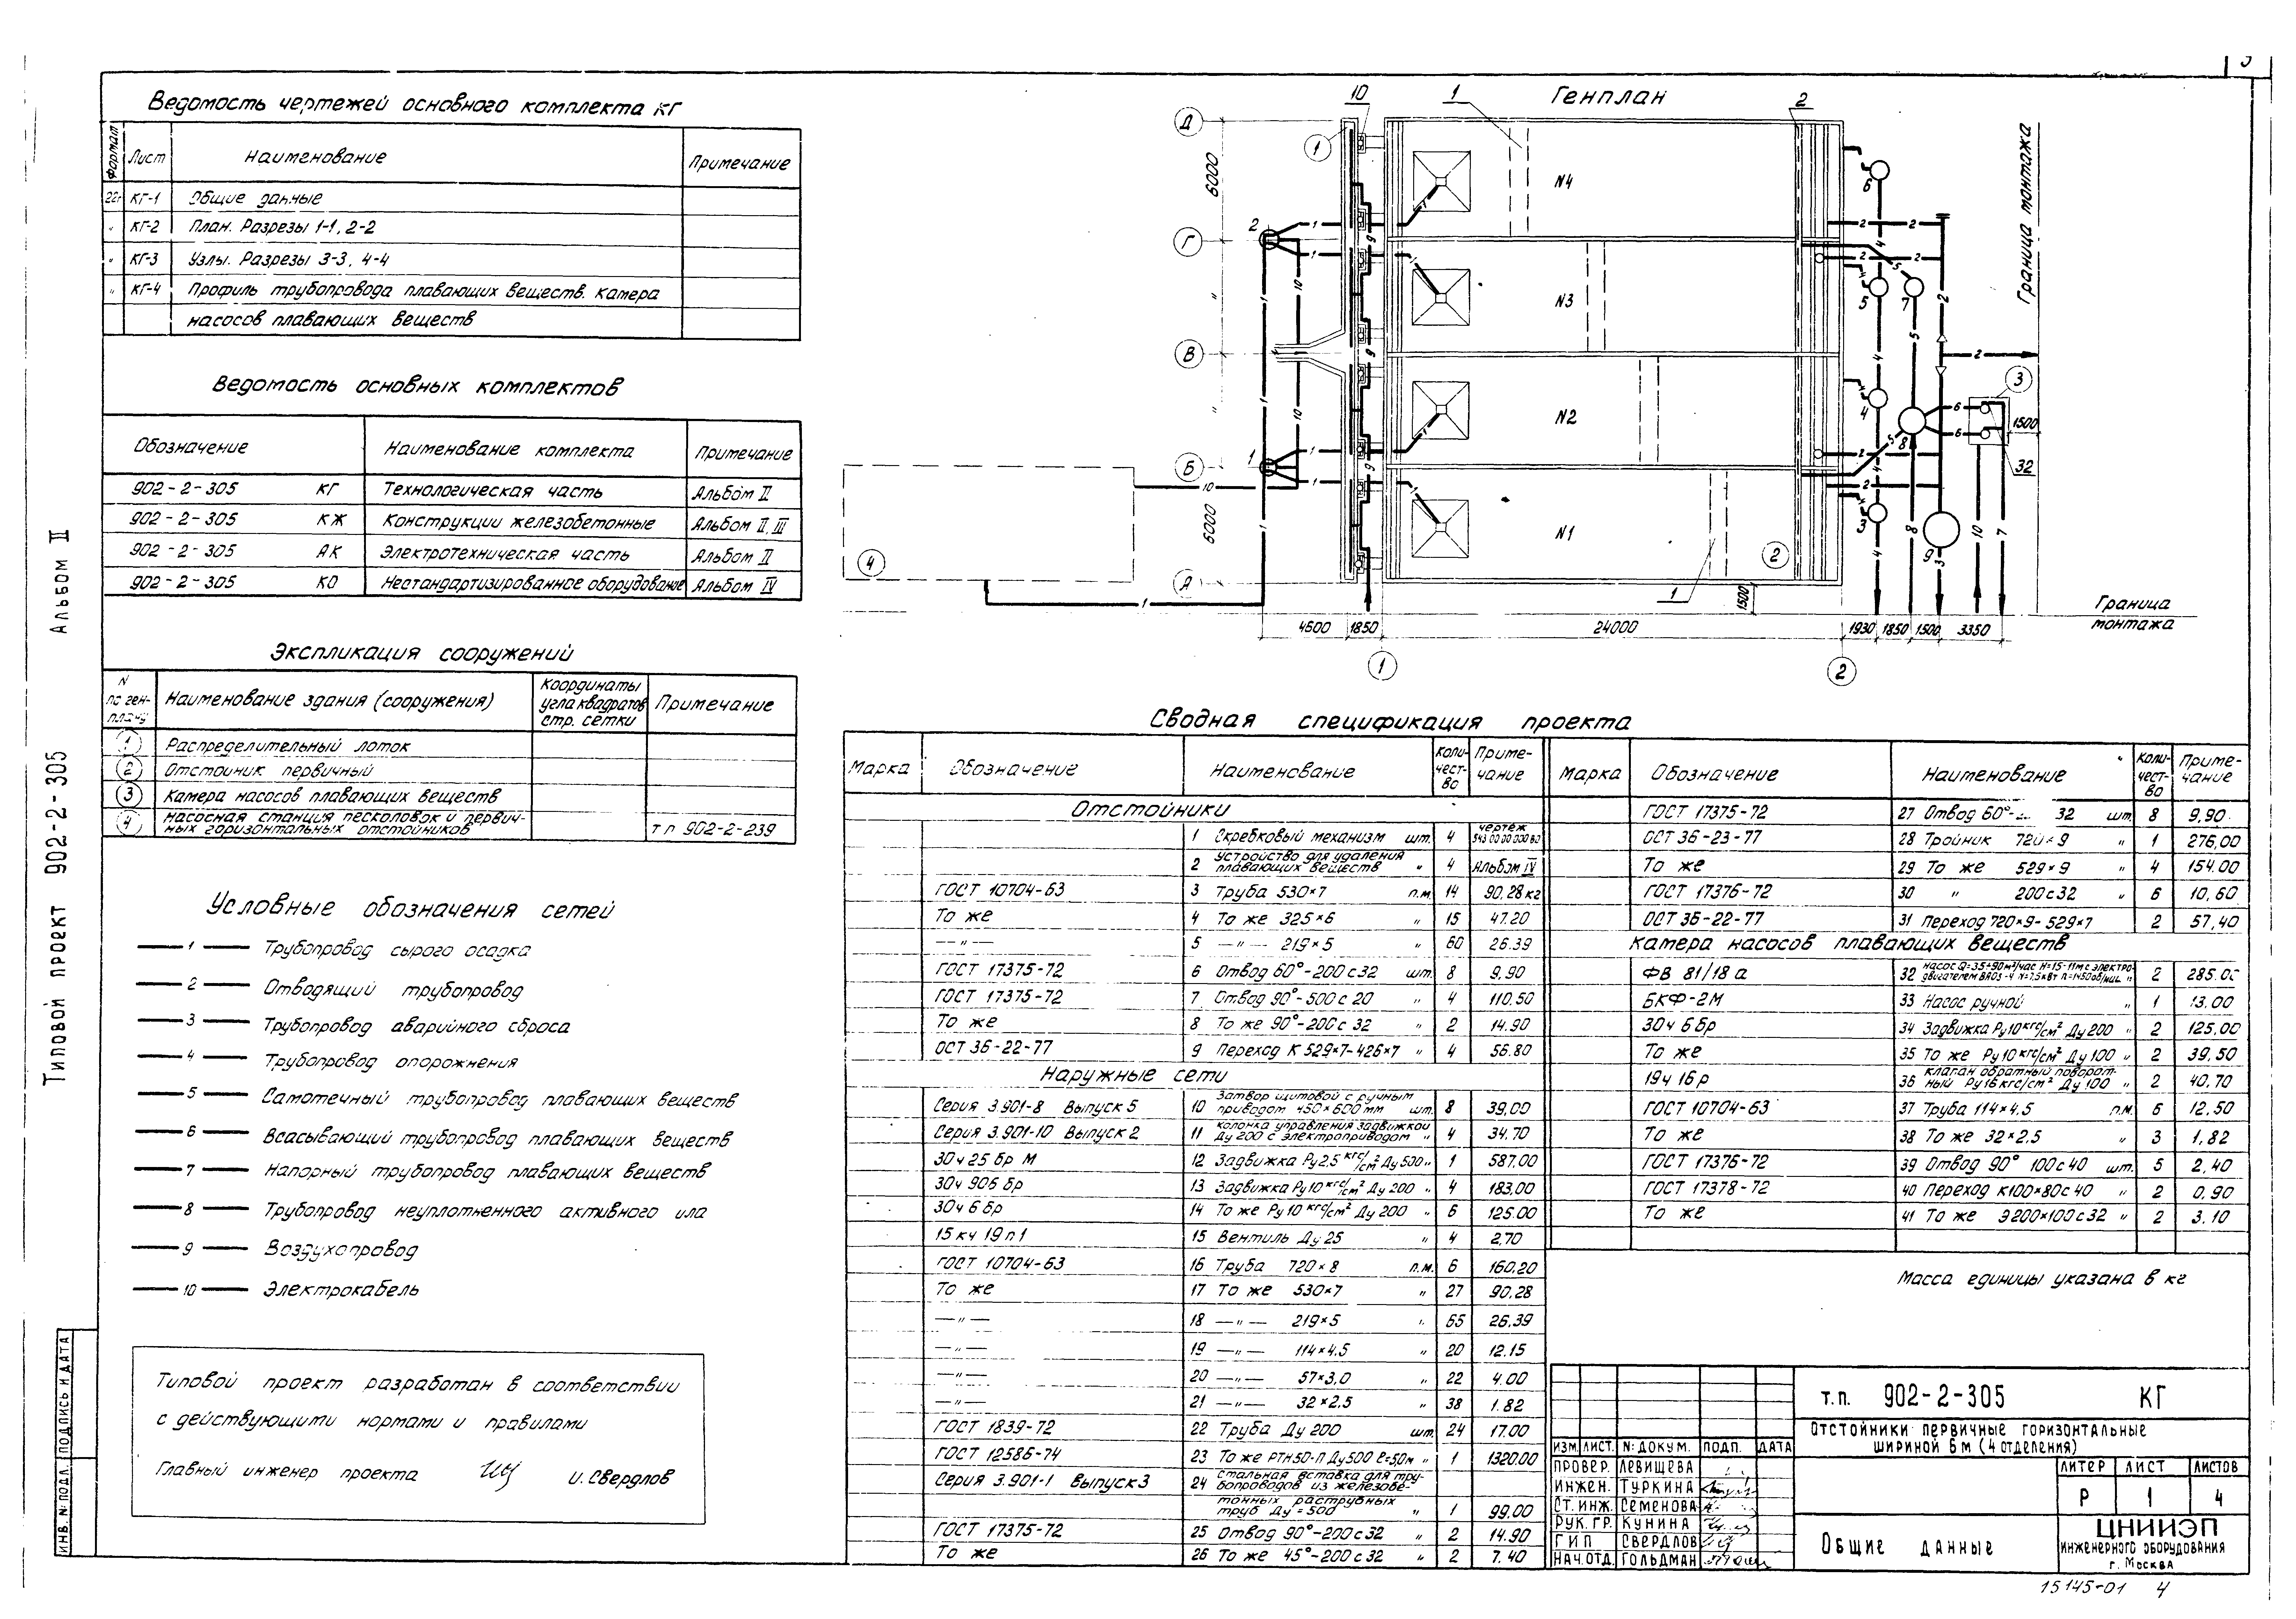 Ведомость чертежей основного комплекта КГ
Формат Лист Наименование Примечание
22г КГ-1 Общие данные
" КГ-2 План. Разрезы 1-1, 2-2
" КГ-3 Узлы. Разрезы 3-3, 4-4
" КГ-4 Профиль трубопровода плавающих веществ. Камера
насосов плавающих веществ
Ведомость основных комплектов
Обозначение Наименование комплекта Примечание
902-2-305 КГ Технологическая часть Альбом II
902-2-305 КЖ Конструкции железобетонные Альбом II, III
902-2-305 АК Электротехническая часть Альбом II
902-2-305 КО Нестандартизированное оборудование Альбом IV
Экспликация сооружений
N по ген-плану Наименование здания (сооружения) Координаты угла квадратов стр. сетки Примечание
1 Распределительный лоток
2 Отстойник первичный
3 Камера насосов плавающих веществ
4 Насосная станция песколовок и первич-
ных горизонтальных отстойников т п 902-2-239
Условные обозначения сетей
1 Трубопровод сырого осадка
2 Отводящий трубопровод
3 Трубопровод аварийного сброса
4 Трубопровод опорожнения
5 Самотечный трубопровод плавающих веществ
6 Всасывающий трубопровод плавающих веществ
7 Напорный трубопровод плавающих веществ
8 Трубопровод неуплотненного активного ила
9 Воздухопровод
10 Электрокабель
Типовой проект разработан в соответствии
с действующими нормами и правилами
Главный инженер проекта И. Свердлов
Типовой проект 902-2-305 Альбом II
ИНВ. № ПОДЛ. ПОДПИСЬ И ДАТА
Генплан
Д
Г
В
Б
А
6000
"
"
6000
10
1
2
N4
N3
N2
N1
Граница монтажа
Граница
монтажа
1500
32
1500
4600 1850 24000 1930 1850 1500 3350
1
2
Сводная спецификация проекта
Марка Обозначение Наименование Коли-чест-во Приме-чание
Отстойники
1 Скребковый механизм шт. 4 чертеж
2 Устройство для удаления плавающих веществ " 4 Альбом IV
ГОСТ 10704-63 3 Труба 530×7 п.м. 14 90,28 кг
То же 4 То же 325×6 " 15 47.20
—"— 5 —"— 219×5 " 60 26.39
ГОСТ 17375-72 6 Отвод 60°-200с32 шт. 8 9,90
ГОСТ 17375-72 7 Отвод 90°-500с 20 " 4 110.50
То же 8 То же 90°-200с 32 " 2 14.90
ОСТ 36-22-77 9 Переход К 529×7-426×7 " 4 56.80
Наружные сети
Серия 3.901-8 Выпуск 5 10 Затвор щитовой с ручным приводом 450×600мм шт. 8 39,00
Серия 3.901-10 Выпуск 2 11 Колонка управления задвижкой Ду 200 с электроприводом " 4 34.70
30ч 25 бр М 12 Задвижка Ру2,5 кгс/см² Ду500 " 1 587.00
30ч 906 бр 13 Задвижка Ру10 кгс/см² Ду 200 " 4 183.00
30ч 6 бр 14 То же Ру 10 кгс/см² Ду 200 " 6 125.00
15 кч 19 п1 15 Вентиль Ду 25 " 4 2,70
ГОСТ 10704-63 16 Труба 720×8 п.м. 6 160,20
То же 17 То же 530×7 " 27 90,28
—"— 18 —"— 219×5 " 65 26,39
—"— 19 —"— 114×4,5 " 20 12.15
—"— 20 —"— 57×3,0 " 22 4.00
—"— 21 —"— 32×2,5 " 38 1.82
ГОСТ 1839-72 22 Труба Ду 200 шт. 24 17.00
ГОСТ 12586-74 23 То же РТН50-П Ду500 ℓ=50м " 1 1320.00
Серия 3.901-1 Выпуск 3 24 Стальная вставка для тру-
бопроводов из железобе-
тонных раструбных
труб Ду=500 " 1 99.00
ГОСТ 17375-72 25 Отвод 90°-200с32 " 2 14.90
То же 26 То же 45°-200с32 " 2 7.40
Марка Обозначение Наименование Коли-чест-во Приме-чание
ГОСТ 17375-72 27 Отвод 60°- 32 шт. 8 9,90
ОСТ 36-23-77 28 Тройник 720×9 " 1 276,00
То же 29 То же 529×9 " 4 154.00
ГОСТ 17376-72 30 " 200с32 " 6 10,60
ОСТ 36-22-77 31 Переход 720×9-529×7 2 57,40
Камера насосов плавающих веществ
ФВ 81/18 а 32 Насос Q=35÷90м³/час Н=15-11м с электро-
двигателем N=7,5кВт n=1450об/мин. " 2 285.00
БКФ-2М 33 Насос ручной " 1 13.00
30ч 6 бр 34 Задвижка Ру10 кгс/см² Ду200 " 2 125.00
То же 35 То же Ру10 кгс/см² Ду100 " 2 39,50
19ч 16 р 36 Клапан обратный поворот-
ный Ру16 кгс/см² Ду 100 " 2 40,70
ГОСТ 10704-63 37 Труба 114×4,5 п.м. 6 12.50
То же 38 То же 32×2,5 " 3 1,82
ГОСТ 17376-72 39 Отвод 90° 100с40 шт. 5 2,40
ГОСТ 17378-72 40 Переход К100×80с40 " 2 0,90
То же 41 То же Э200×100с32 " 2 3.10
Масса единицы указана в кг
Т.П. 902-2-305 КГ
Отстойники первичные горизонтальные
шириной 6м (4 отделения)
ИЗМ. ЛИСТ. № ДОКУМ. ПОДП. ДАТА
ПРОВЕР. ЛЕВИЩЕВА
ИНЖЕН. ТУРКИНА
СТ. ИНЖ. СЕМЕНОВА
РУК. ГР. КУНИНА
ГИП СВЕРДЛОВ
НАЧ.ОТД. ГОЛЬДМАН
ЛИТЕР ЛИСТ ЛИСТОВ
Р 1 4
Общие данные
ЦНИИЭП
ИНЖЕНЕРНОГО ОБОРУДОВАНИЯ
г. Москва
15145-01 4